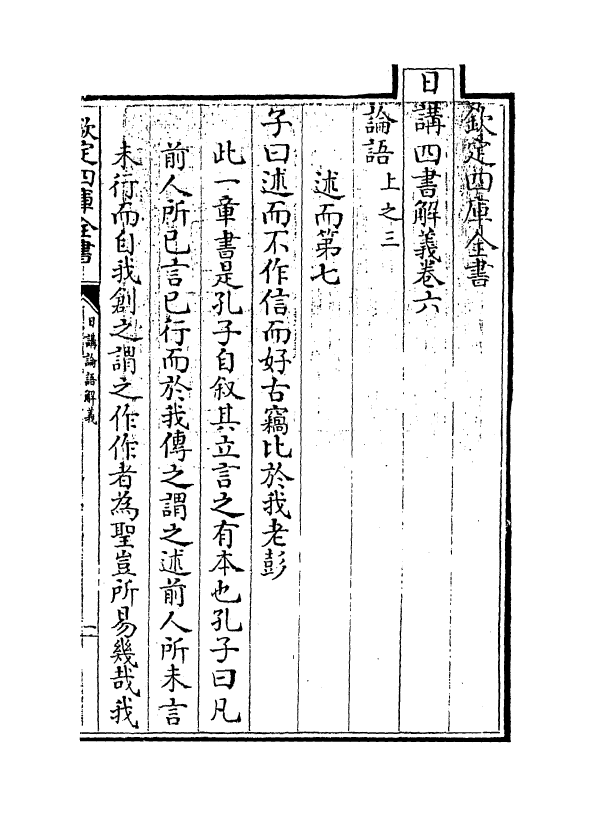 欽定四庫全書
日講四書解義卷六
論語上之三
述而第七
子曰述而不作信而好古竊比於我老彭
此一章書是孔子自叙其立言之有本也孔子曰凡
前人所已言已行而於我傳之謂之述前人所未言
未行而自我創之謂之作作者為聖豈所易幾哉我
欽定四庫全書
日講論語解義
一